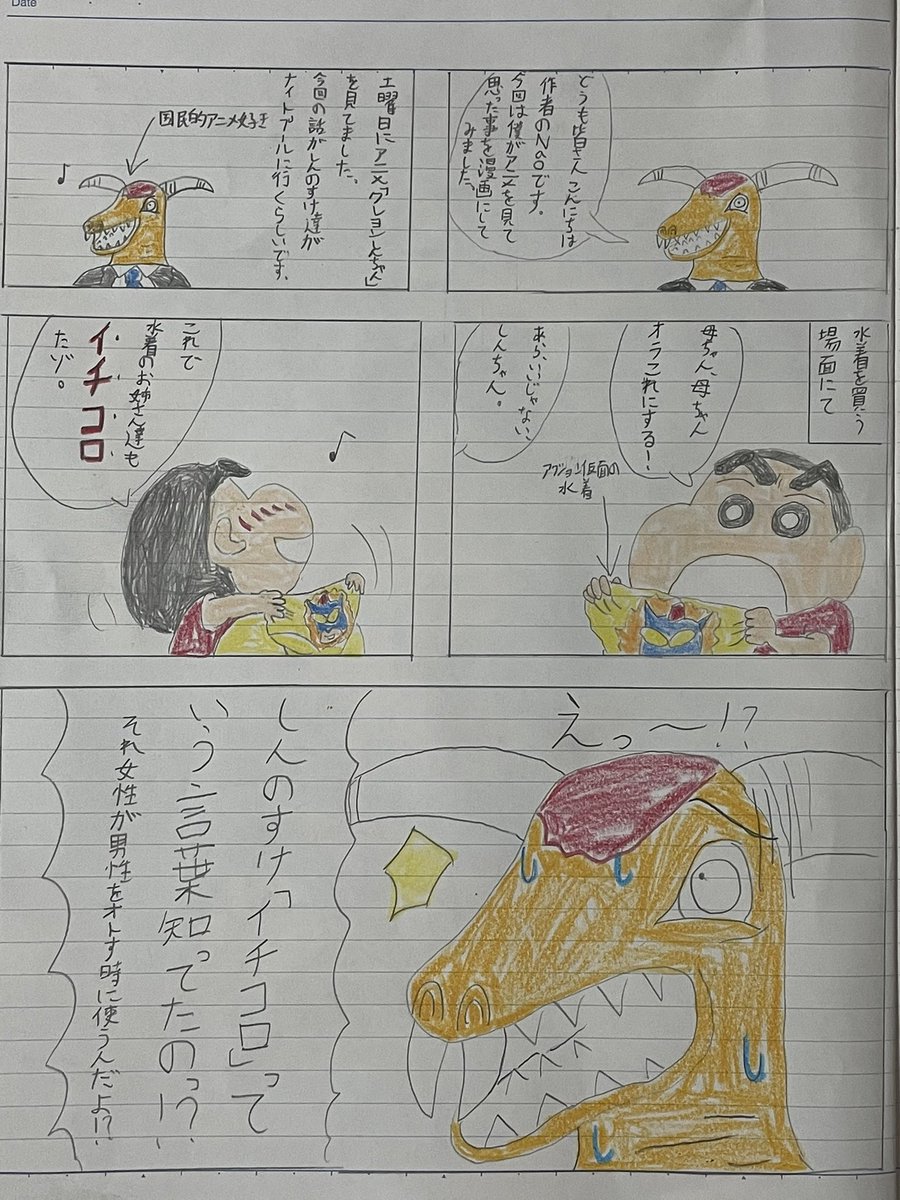 Date
どうも皆さんこんにちは
作者のNaoです。
今回は僕がアニメを見て
思った事を漫画にして
みました。
土曜日にアニメ「クレヨンしんちゃん」
を見てました。
今回の話がしんのすけ達が
ナイトプールに行くらしいです。
国民的アニメ好き
水着を買う
場面にて
母ちゃん、母ちゃん
オラこれにする!
あら、いいじゃない、
しんちゃん。
アクション仮面の
水着
これで
水着のお姉さん達も
イチコロ
だゾ。
えっ〜!?
しんのすけ「イチコロ」って
いう言葉知ってたのっ!?
それ女性が男性をオトす時に使うんだよ!?